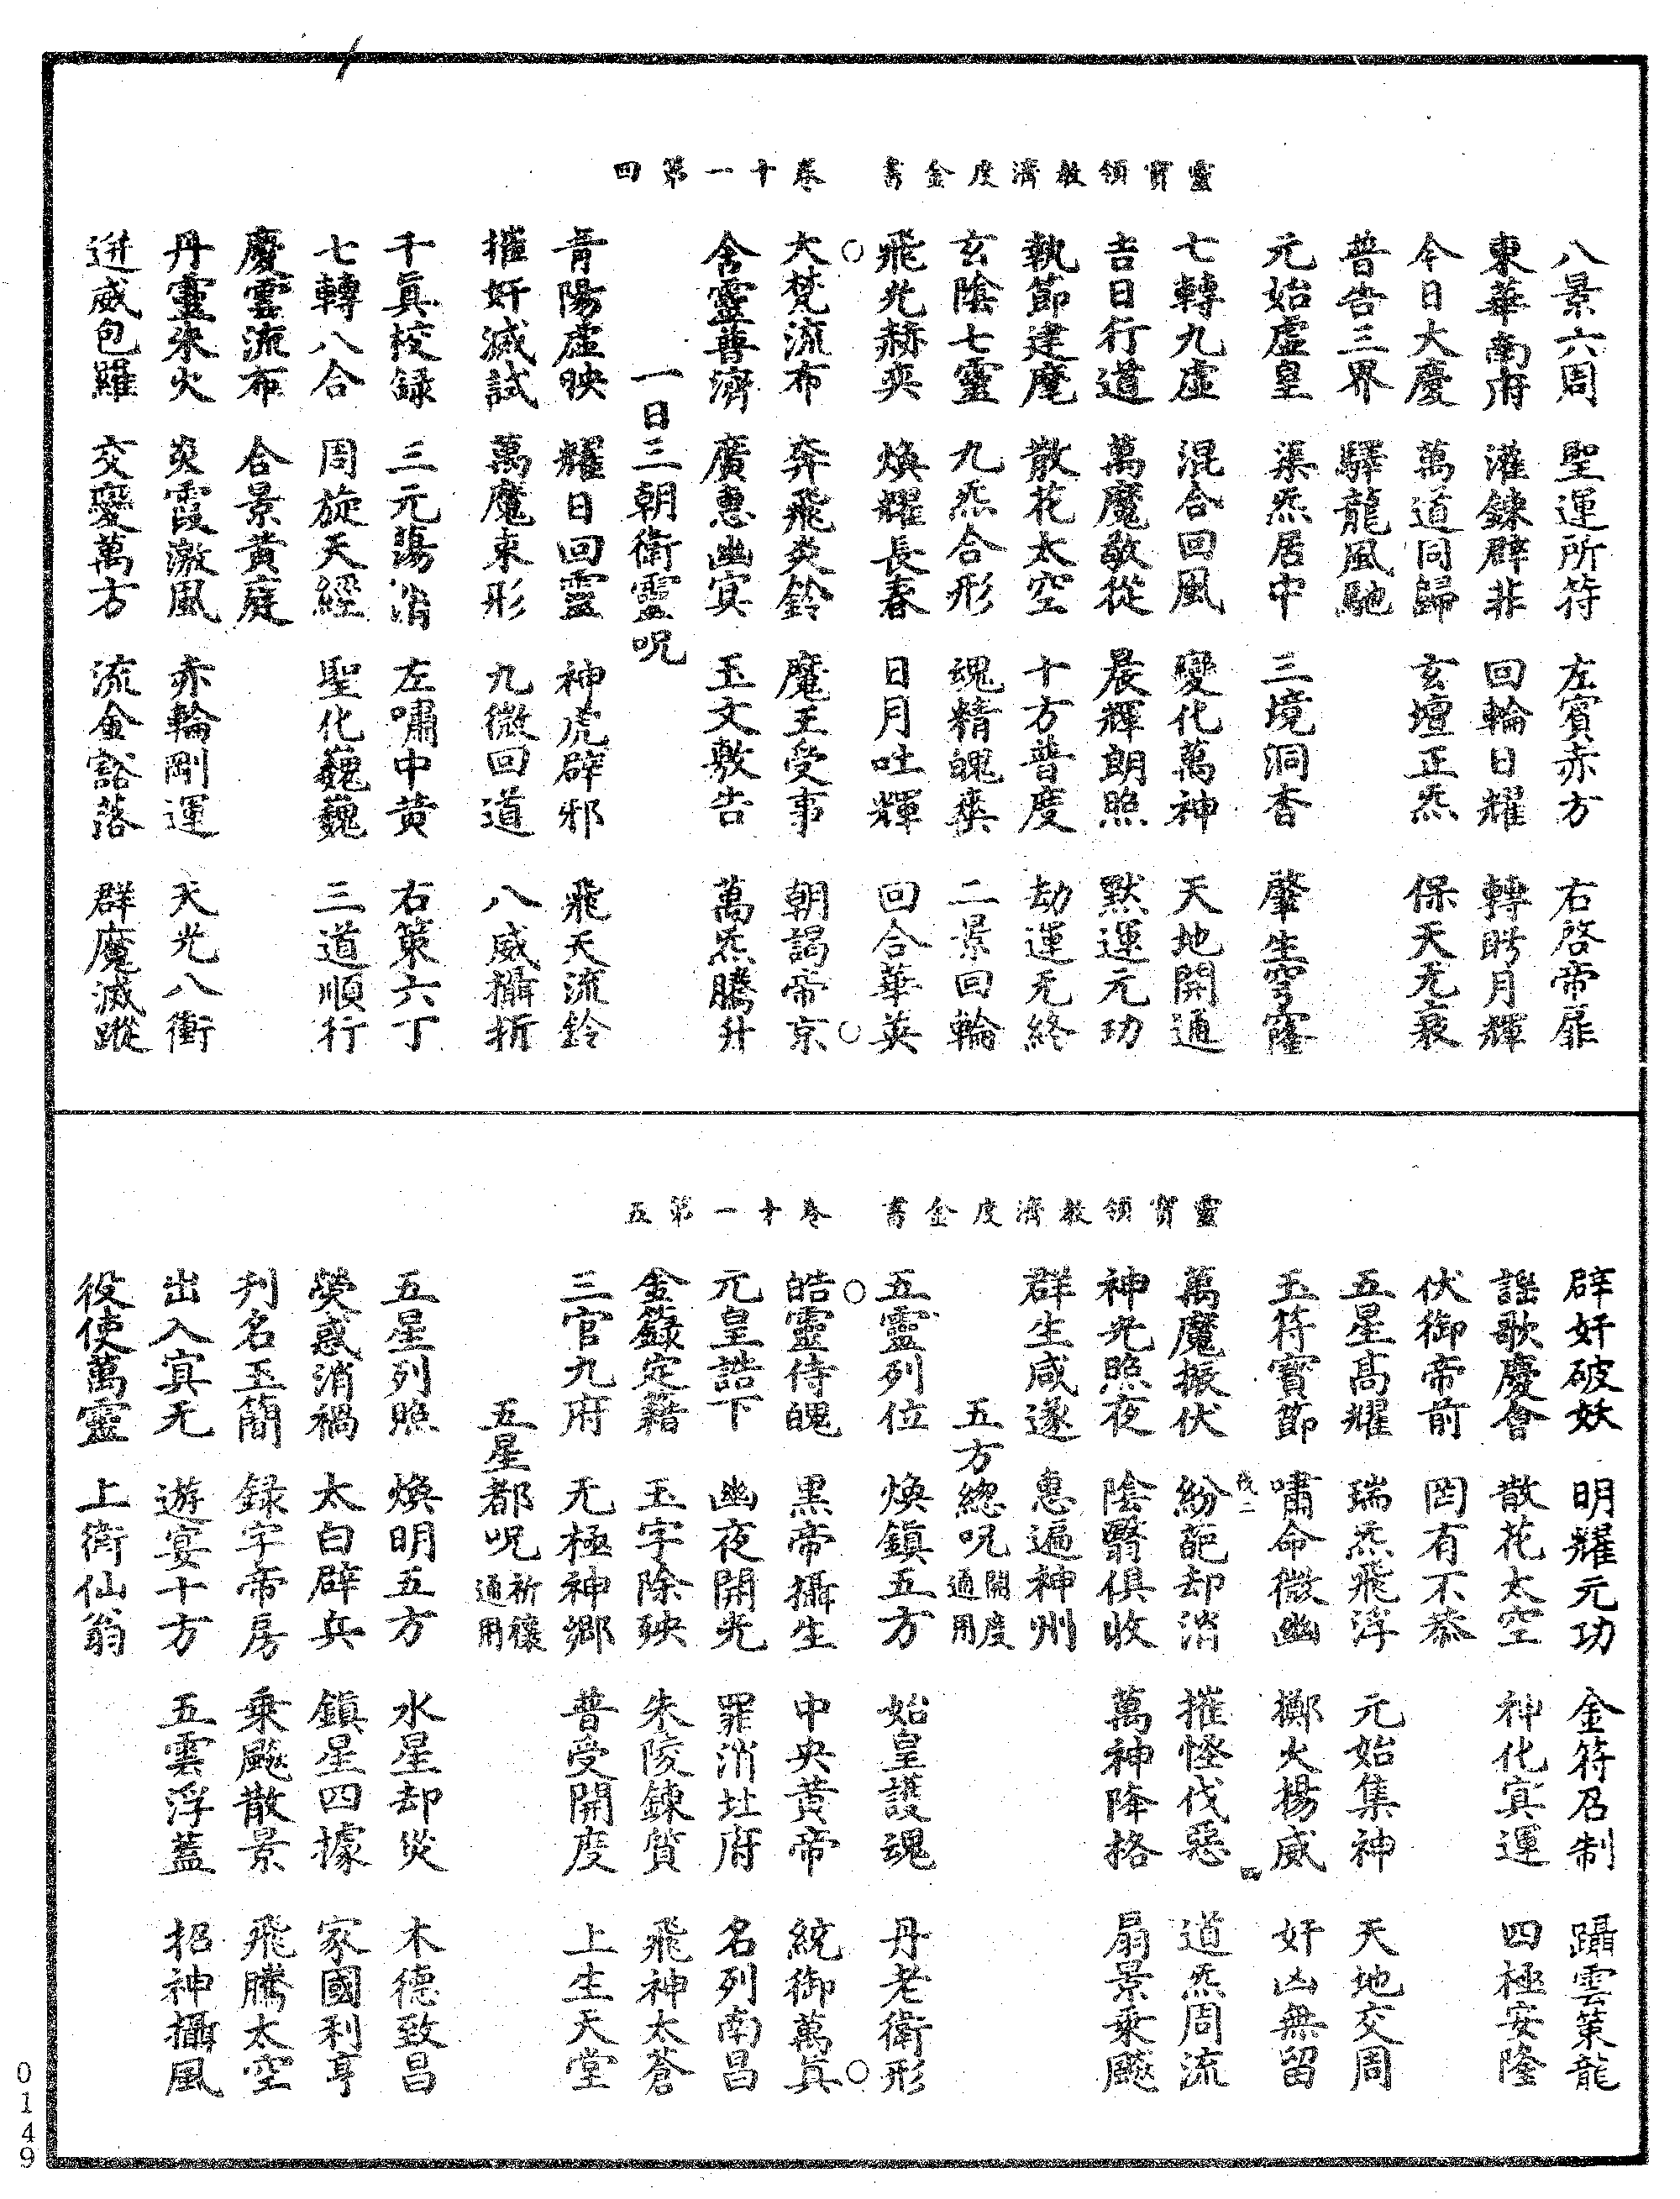 靈寶領教濟度金書　卷十一第四
八景六周　聖運所符　左賓赤方　右啓帝扉
東華南府　灌鍊辟非　回輪日耀　轉眄月輝
今日大慶　萬道同歸　玄壇正炁　保天无衰
普告三界　驛龍風馳
元始虛皇　渠炁居中　三境洞杳　肇生穹窿
七轉九虛　混合回風　變化萬神　天地開通
吉日行道　萬魔敬從　晨輝朗照　默運元功
執節建麾　散花太空　十方普度　劫運无終
玄陰七靈　九炁合形　魂精魄爽　二景回輪
飛光赫奕　煥耀長春　日月吐輝　回合華英
○大梵流布　奔飛炎鈴　魔王受事　朝謁帝京○
含靈普濟　廣惠幽冥　玉文敷告　萬炁騰升
一日三朝衛靈呪
青陽虛映　耀日回靈　神虎辟邪　飛天流鈴
摧奸滅試　萬魔束形　九微回道　八威攝折
千眞校録　三元蕩消　左嘯中黃　右策六丁
七轉八合　周旋天經　聖化巍巍　三道順行
慶雲流布　合景黃庭
丹靈朱火　炎霞激風　赤輪剛運　天光八衝
迸威包羅　交變萬方　流金豁落　群魔滅蹤
靈寶領教濟度金書　卷十一第五
辟奸破妖　明耀元功　金符召制　躡雲策龍
謠歌慶會　散花太空　神化冥運　四極安隆
伏御帝前　罔有不恭
五星高耀　瑞炁飛浮　元始集神　天地交周
玉符寶節　嘯命微幽　擲火揚威　奸凶無留
萬魔振伏　紛葩却消　摧怪伐惡　道炁周流
神光照夜　陰翳俱收　萬神降格　扇景乘飈
群生咸遂　惠遍神州
五方總呪開度通用
五靈列位　煥鎮五方　始皇護魂　丹老衛形
○皓靈侍魄　黑帝攝生　中央黃帝　統御萬眞○
元皇誥下　幽夜開光　罪消北府　名列南昌
金籙定籍　玉字除殃　朱陵鍊質　飛神太蒼
三官九府　无極神鄉　普受開度　上生天堂
五星都呪祈禳通用
五星列照　煥明五方　水星却災　木德致昌
熒惑消禍　太白辟兵　鎮星四據　家國利亨
刋名玉簡　録字帝房　乗飈散景　飛騰太空
出入冥无　遊宴十方　五雲浮蓋　招神攝風
役使萬靈　上衛仙翁
0149